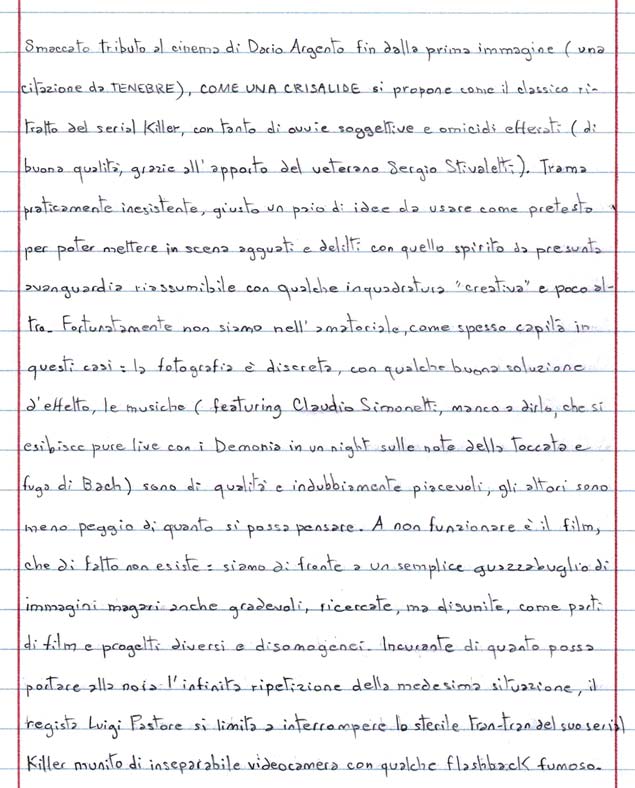 Smaccato tributo al cinema di Dario Argento fin dalla prima immagine (una
citazione da TENEBRE), COME UNA CRISALIDE si propone come il classico ri-
tratto del serial Killer, con tanto di ovvie soggettive e omicidi efferati (di
buona qualità, grazie all'apporto del veterano Sergio Stivaletti). Trama
praticamente inesistente, giusto un paio di idee da usare come pretesto
per poter mettere in scena agguati e delitti con quello spirito da presunta
avanguardia riassumibile con qualche inquadratura "creativa" e poco al-
tro. Fortunatamente non siamo nell'amatoriale, come spesso capita in
questi casi: la fotografia è discreta, con qualche buona soluzione
d'effetto, le musiche (featuring Claudio Simonetti, manco a dirlo, che si
esibisce pure live con i Demonia in un night sulle note della Toccata e
fuga di Bach) sono di qualità e indubbiamente piacevoli, gli attori sono
meno peggio di quanto si possa pensare. A non funzionare è il film,
che di fatto non esiste: siamo di fronte a un semplice guazzabuglio di
immagini magari anche gradevoli, ricercate, ma disunite, come parti
di film e progetti diversi e disomogenei. Incurante di quanto possa
portare alla noia l'infinita ripetizione della medesima situazione, il
regista Luigi Pastore si limita a interrompere lo sterile tran-tran del suo serial
Killer munito di inseparabile videocamera con qualche flashback fumoso.